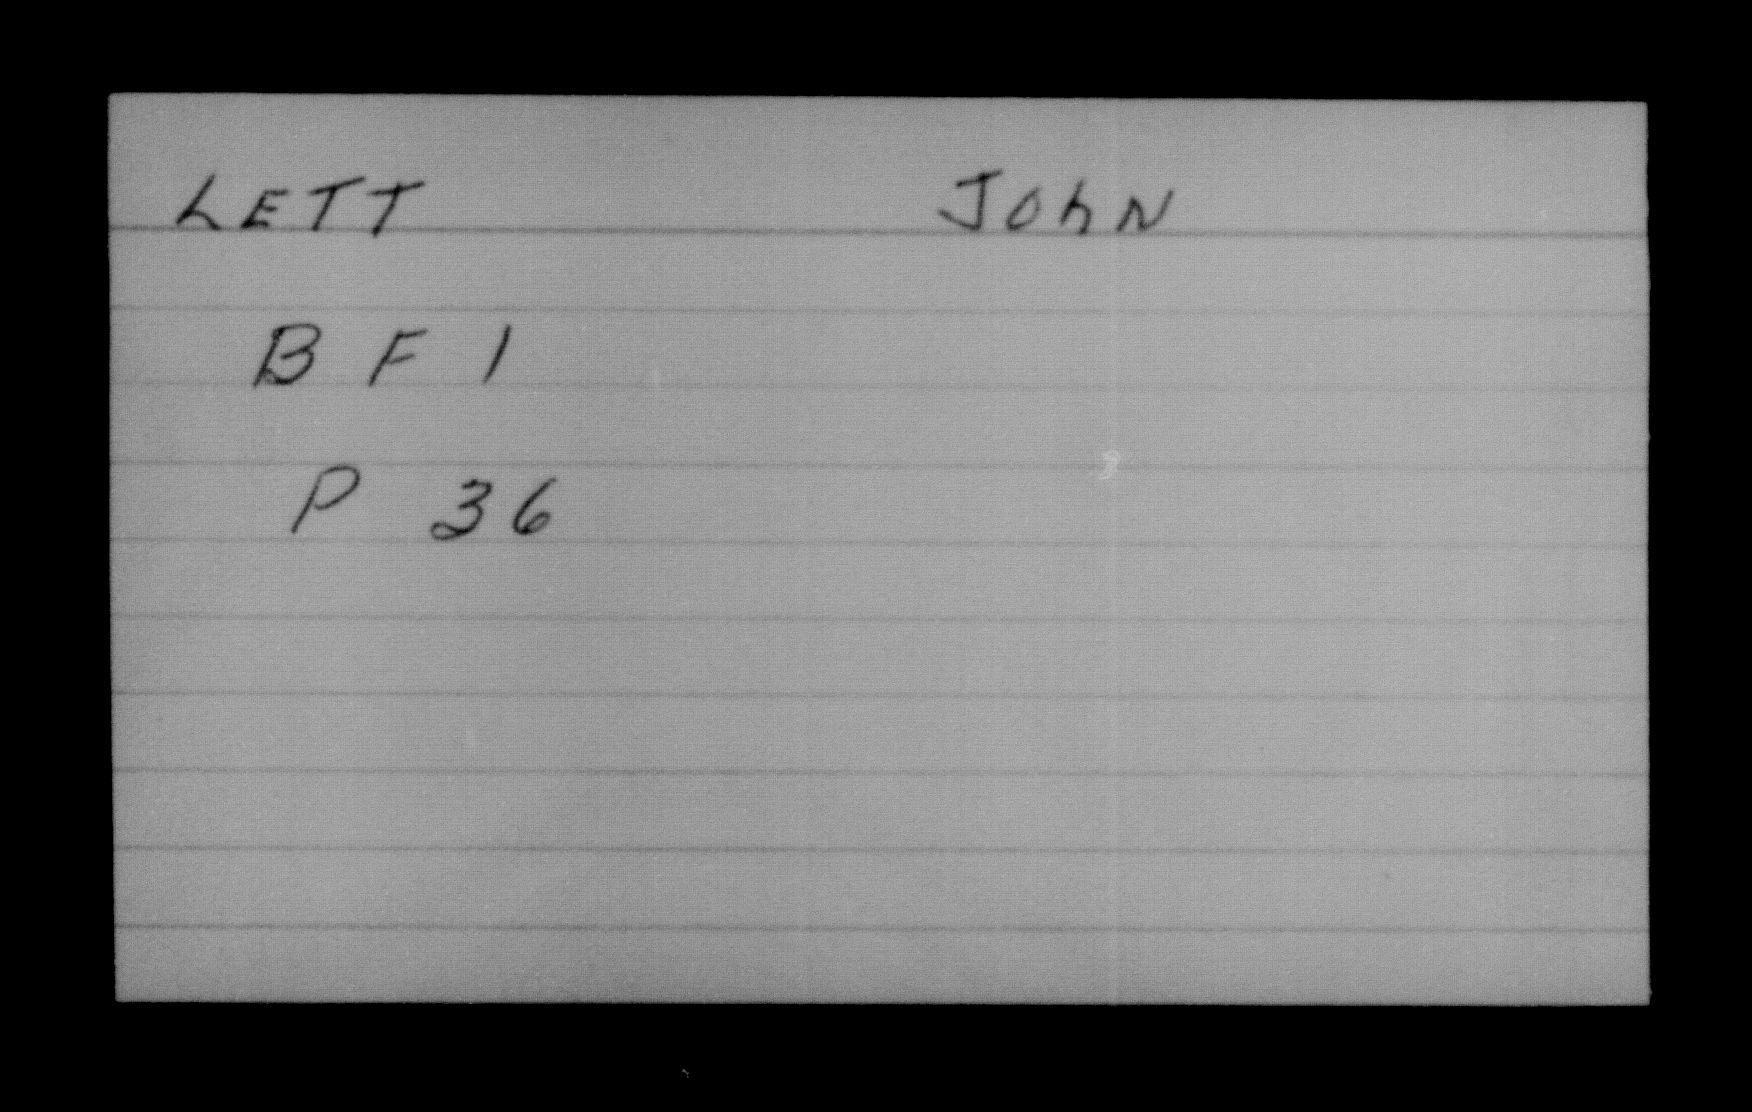 LETT JOhN
B F 1
P 36